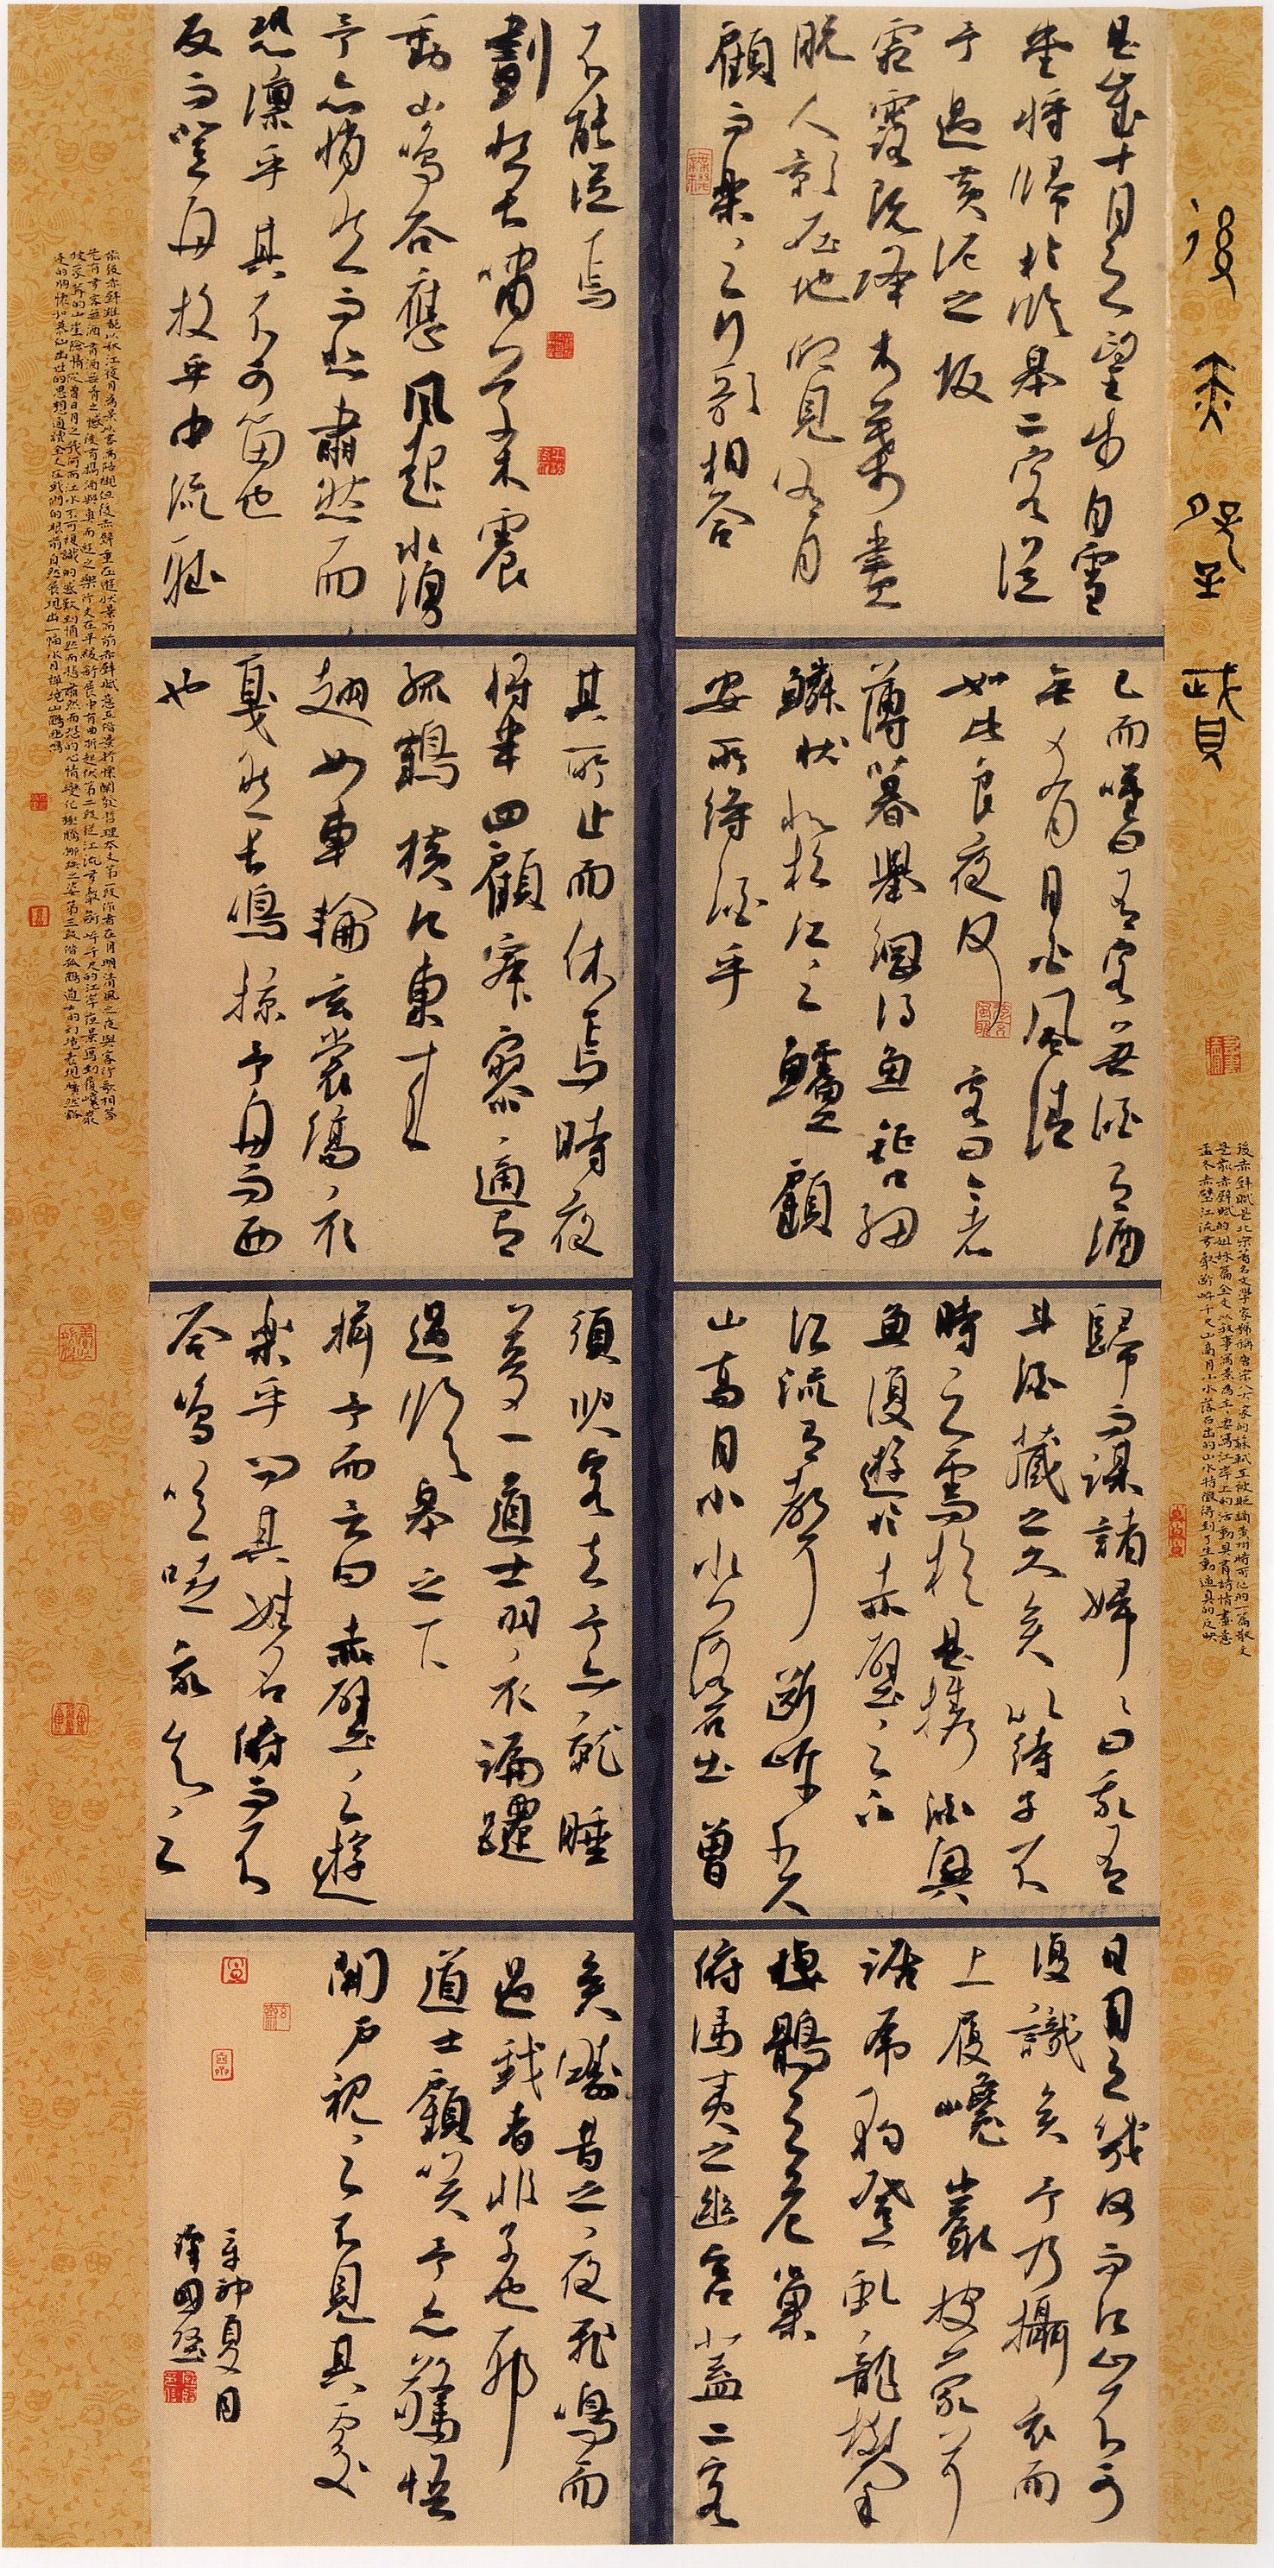 後赤壁賦
後赤壁賦是北宋著名文學家號稱唐宋八大家的蘇軾在被貶謫黃州時所作的一篇散文
是前赤壁賦的姐妹篇全文以敘事寫景為主要寫江岸上的活動具有詩情畫意
孟冬赤壁江流有聲斷岸千尺山高月小水落石出的山水特徵得到了生動逼真的反映
是歲十月之望步自雪
堂將歸於臨皋二客從
予過黃泥之坂
霜露既降木葉盡
脫人影在地仰見明月
顧而樂之行歌相答
已而嘆曰有客無酒有酒
無肴月白風清
如此良夜何 客曰今者
薄暮舉網得魚巨口細
鱗狀如松江之鱸顧
安所得酒乎
歸而謀諸婦婦曰我有
斗酒藏之久矣以待子不
時之需於是攜酒與
魚復遊於赤壁之下
江流有聲斷岸千尺
山高月小水落石出曾
日月之幾何而江山不可
復識矣予乃攝衣而
上履巉巖披蒙茸
踞虎豹登虬龍攀
棲鶻之危巢
俯馮夷之幽宮蓋二客
不能從焉
劃然長嘯草木震
動山鳴谷應風起水湧
予亦悄然而悲肅然而
恐凜乎其不可留也
反而登舟放乎中流聽
其所止而休焉時夜
將半四顧寂寥適有
孤鶴橫江東來
翅如車輪玄裳縞衣
戛然長鳴掠予舟而西
也
須臾客去予亦就睡
夢一道士羽衣蹁躚
過臨皋之下
揖予而言曰赤壁之遊
樂乎問其姓名俯而不
答嗚呼噫嘻我知之
矣疇昔之夜飛鳴而
過我者非子也耶
道士顧笑予亦驚悟
開戶視之不見其處
夏月